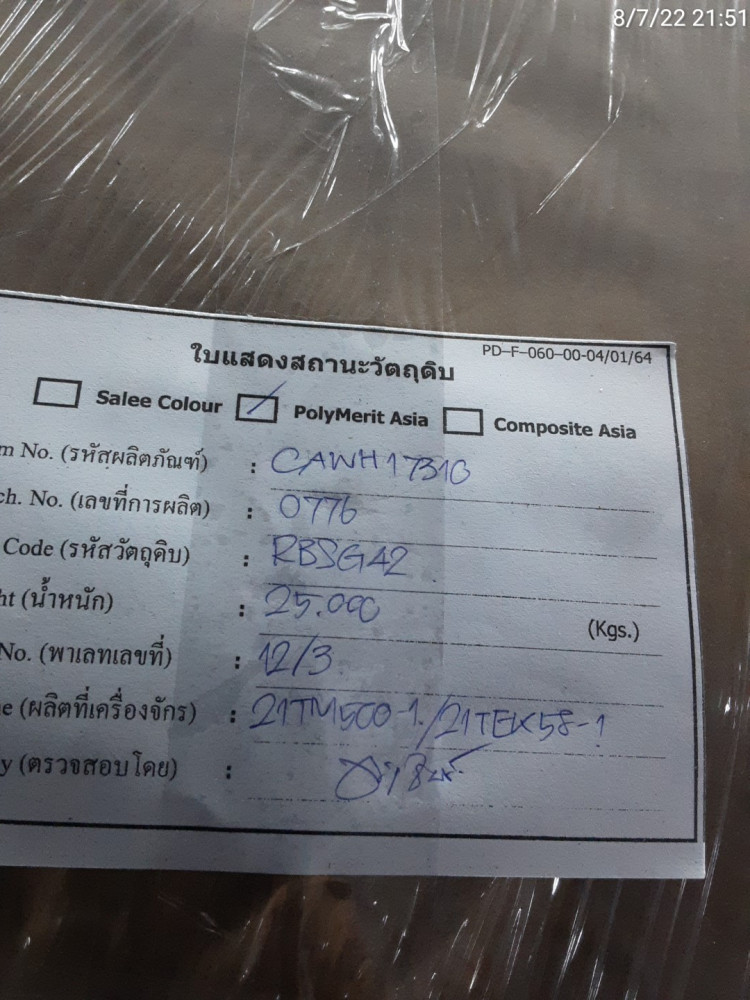 8/7/22 21:51
PD-F-060-00-04/01/64
ใบแสดงสถานะวัตถุดิบ
Salee Colour PolyMerit Asia Composite Asia
m No. (รหัสผลิตภัณฑ์) : CAWH17310
ch. No. (เลขที่การผลิต) : 0776
Code (รหัสวัตถุดิบ) : RBSG42
ht (น้ำหนัก) : 25.000 (Kgs.)
No. (พาเลทเลขที่) : 12/3
e (ผลิตที่เครื่องจักร) : 21TM500-1/21TEK58-1
y (ตรวจสอบโดย) :